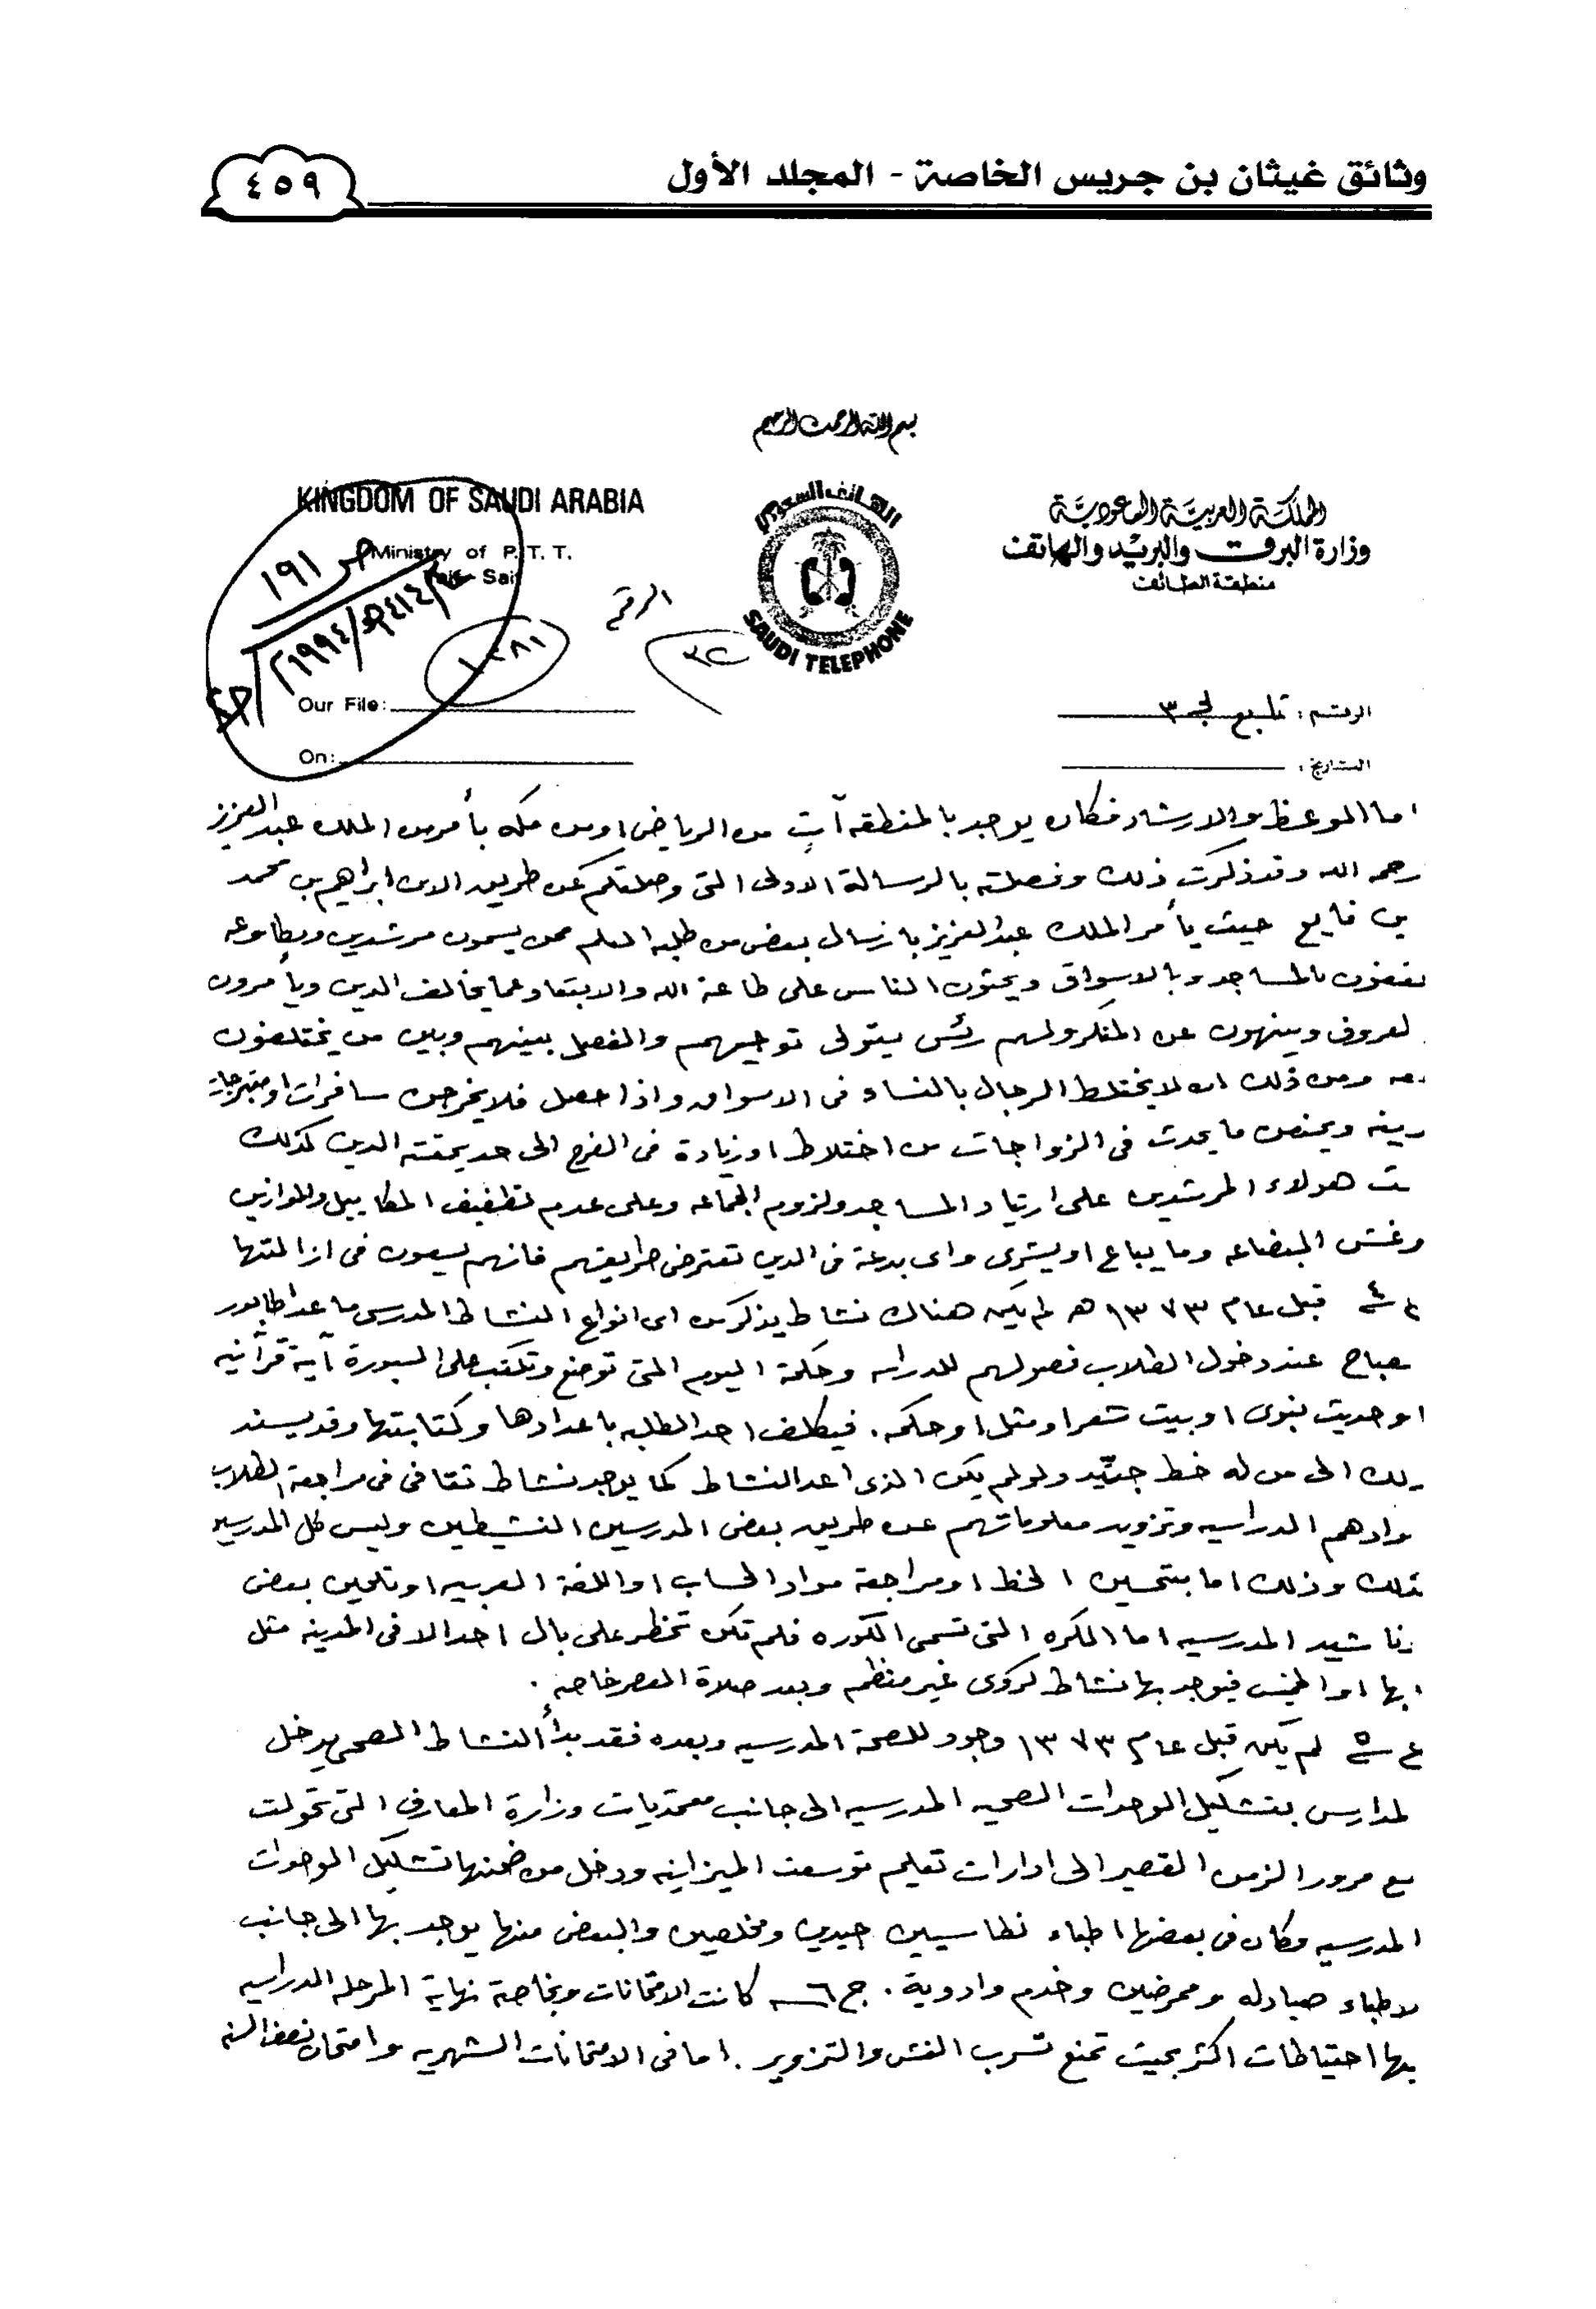 وثائق غيثان بن جريس الخاصة - المجلد الأول
٤٥٩
بسم الله الرحمن الرحيم
المملكة العربية السعودية
وزارة البرق والبريد والهاتف
منطقة الطائف
الهاتف السعودي
SAUDI TELEPHONE
KINGDOM OF SAUDI ARABIA
Ministry of P. T. T.
ص ١٩١
الرقم
٣٢
Our File:
On:
الرقم: تابع لجـ ٣
التاريخ:
اما الوعظ والارشاد فكان يوجد بالمنطقه آتٍ من الرياض او من مكه بأمر من الملك عبد العزيز
رحمه الله وقد ذكرت ذلك وفصلته بالرسالة الاولى التى وصلتكم عن طريق الابن ابراهيم بن محمد
بن فايع حيث يأمر الملك عبد العزيز بارسال بعض من طلبه العلم ممن يسمون مرشدين ومطاوعه
يقفون بالمساجد وبالاسواق ويحثون الناس على طاعة الله والابتعاد عما يخالف الدين ويأمرون
لعروف وينهون عن المنكر ولهم رئس يتولى توجيههم والفصل بينهم وبين من يختلفون
عه ومن ذلك ان لا يختلط الرجال بالنساء فى الاسواق واذا حصل فلا يخرجن سافرات او متبرجات
زينه ويخص ما يحدث فى الزواجات من اختلاط او زيادة فى الفرح الى حد يمقته الدين كذلك
ث هولاء المرشدين على ارتياد المساجد ولزوم الجماعه وعلى عدم تطفيف المكاييل والموازين
وغش البضاعه وما يباع او يشترى واى بدعة فى الدين تعترض طريقهم فانهم يسعون فى ازالتها
ج٤ قبل عام ١٣٧٣هـ لم يكن هناك نشاط يذكر من اى انواع النشاط المدرسى ما عدا طابور
صباح عند دخول الطلاب فصولهم للدراسه وحكمة اليوم التى توضع وتكتب على السبورة آية قرآنيه
او حديث نبوى او بيت شعر او مثل او حكمه. فيكلف احد الطلبه باعدادها وكتابتها وقد يسند
لك الى من له خط جيّد ولو لم يكن الذى اعد النشاط كما يوجد نشاط ثقافى فى مراجعة الطلاب
وادهم الدراسيه وتزويد معلوماتهم عن طريق بعض المدرسين النشيطين وليس كل المدرسين
ذلك وذلك اما بتحسين الخط او مراجعة مواد الحساب او اللغة العربيه او تلحين بعض
ناشيد المدرسيه اما الكره التى تسمى الكوره فلم تكن تخطر على بال احد الا فى المدينه مثل
ابها او الخميس فيوجد بها نشاط كروى غير منظم وبعد صلاة العصر خاصه.
ج٥ لم يكن قبل عام ١٣٧٣ وجود للصحة المدرسيه وبعده فقد بدأ النشاط الصحى يدخل
لمدارس بتشكيل الوحدات الصحيه المدرسيه الى جانب معتمديات وزارة المعارف التى تحولت
مع مرور الزمن القصير الى ادارات تعليم توسعت الميزانيه ودخل من ضمنها تشكيل الوحدات
المدرسيه وكان فى بعضها اطباء نطاسيين جيدين ومخلصين والبعض منها يوجد بها الى جانب
لاطباء صيادله وممرضين وخدم وادوية. ج٦ كانت الامتحانات وبخاصة نهاية المرحله الدراسيه
بها احتياطات اكثر بحيث تمنع تسرب الغش والتزوير. اما فى الامتحانات الشهريه وامتحان نصف السنه